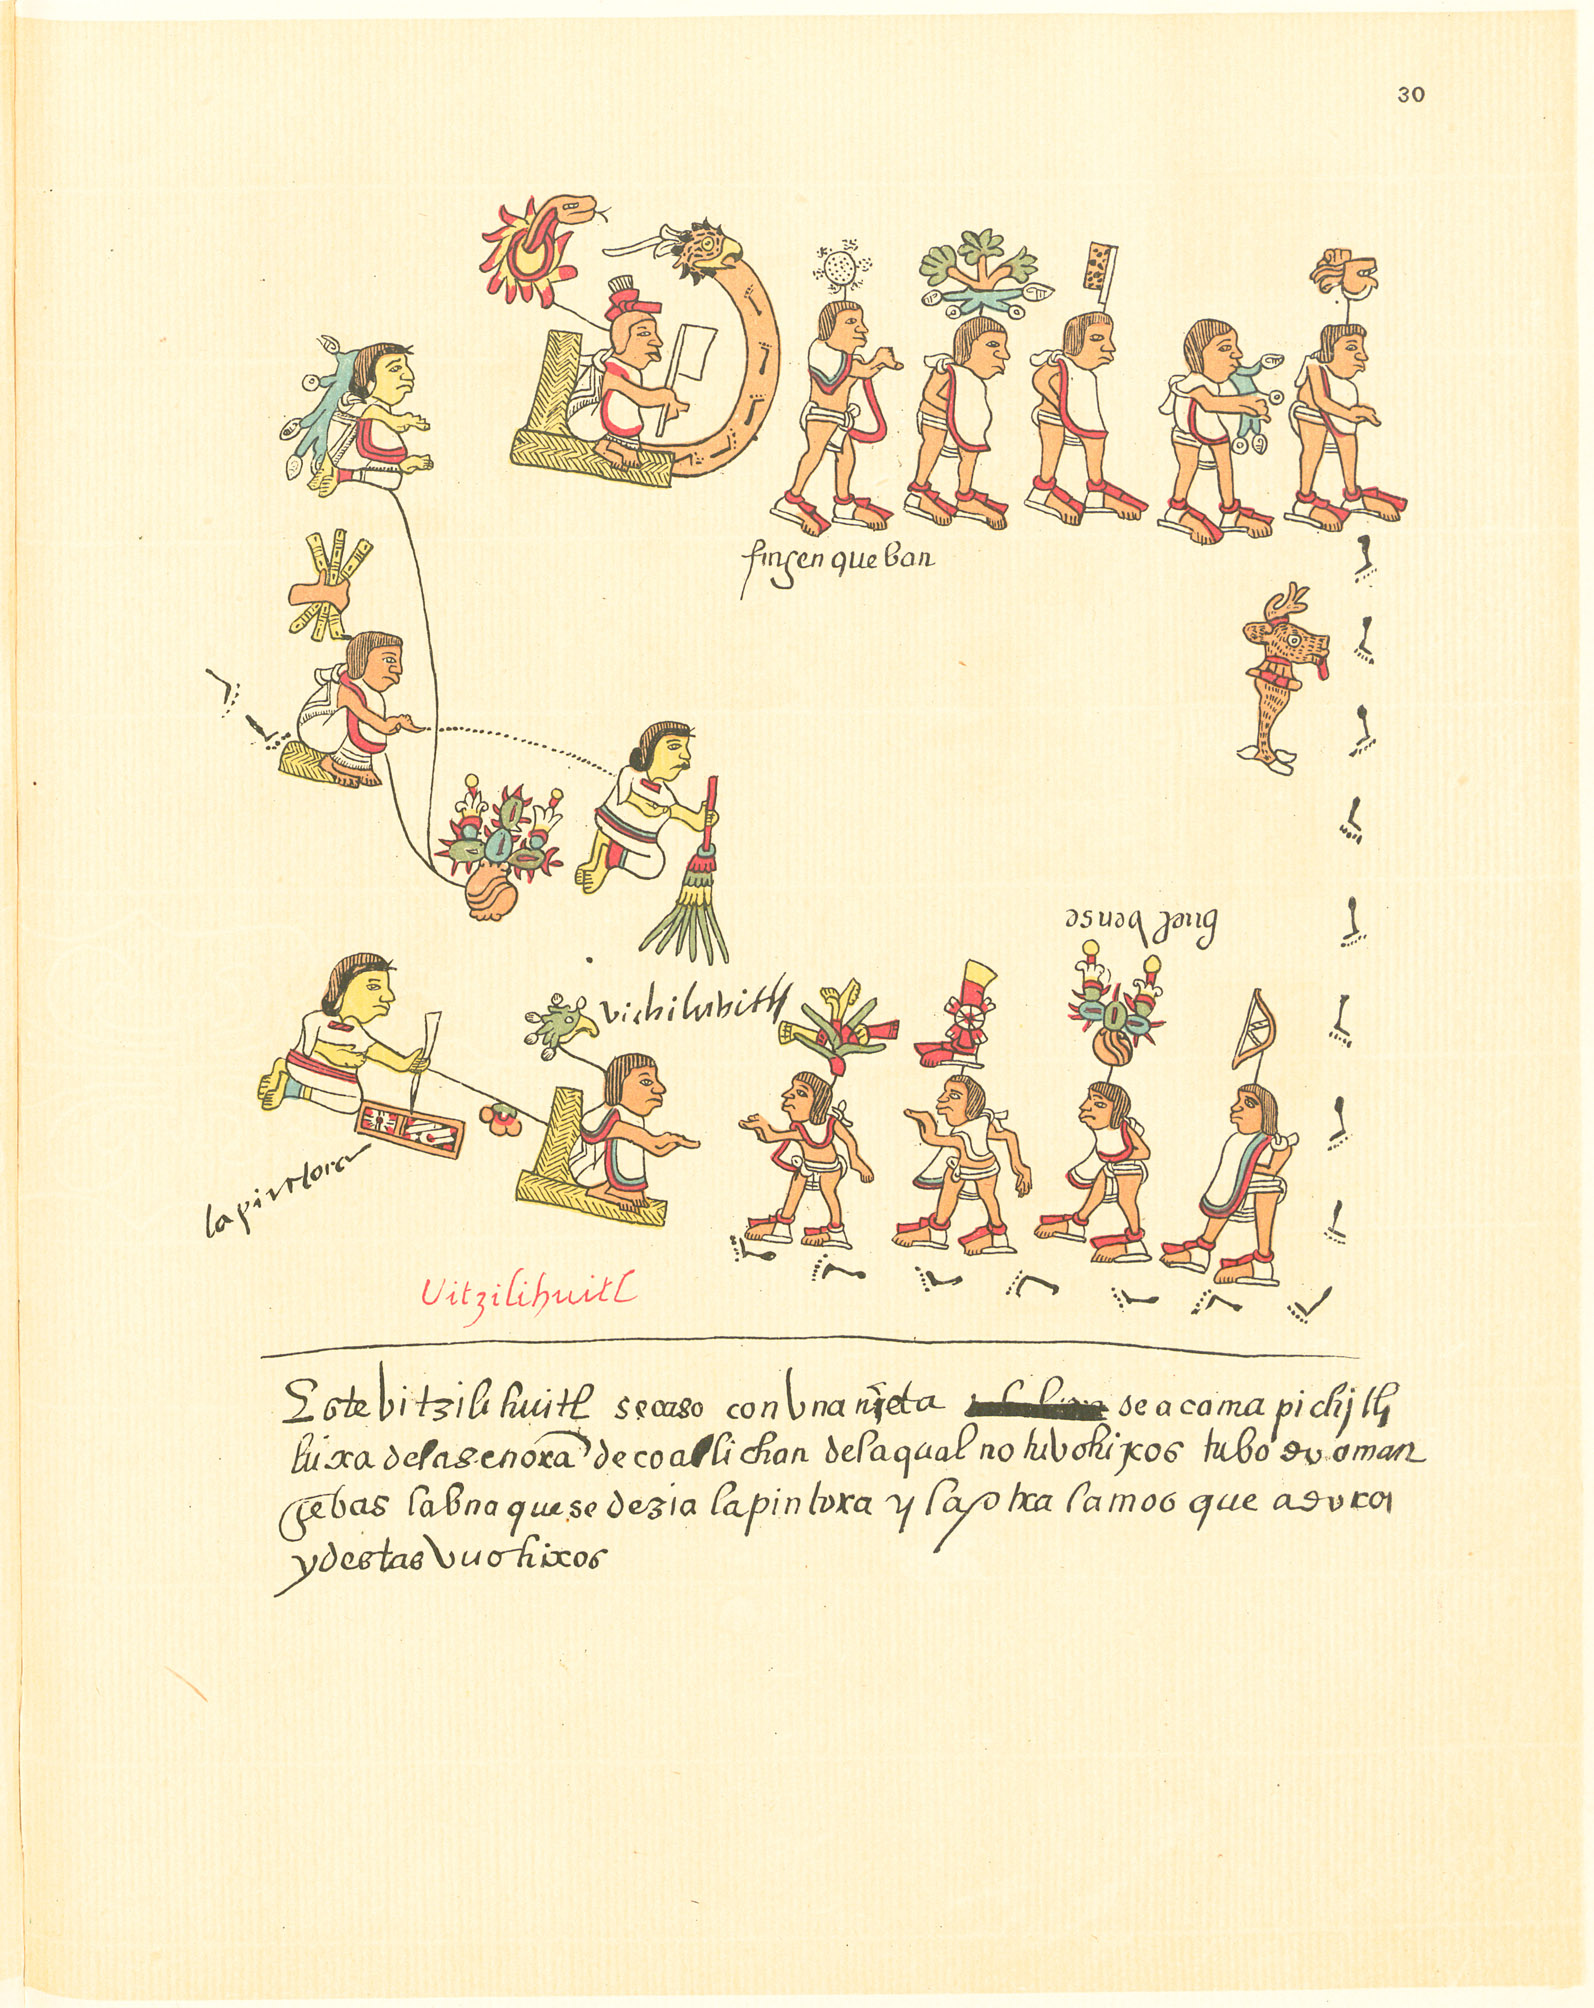 30
fingen que ban
buelbense
vichiluhitl
la pintora
Uitzilihuitl
Este vitzilihuitl se caso con vna nieta de acamapichtli
hixa de la senora de coatlichan de la qual no tuvo hixos tubo dos man
cebas la vna que se dezia la pintora y la otra
y destas vuo hixos